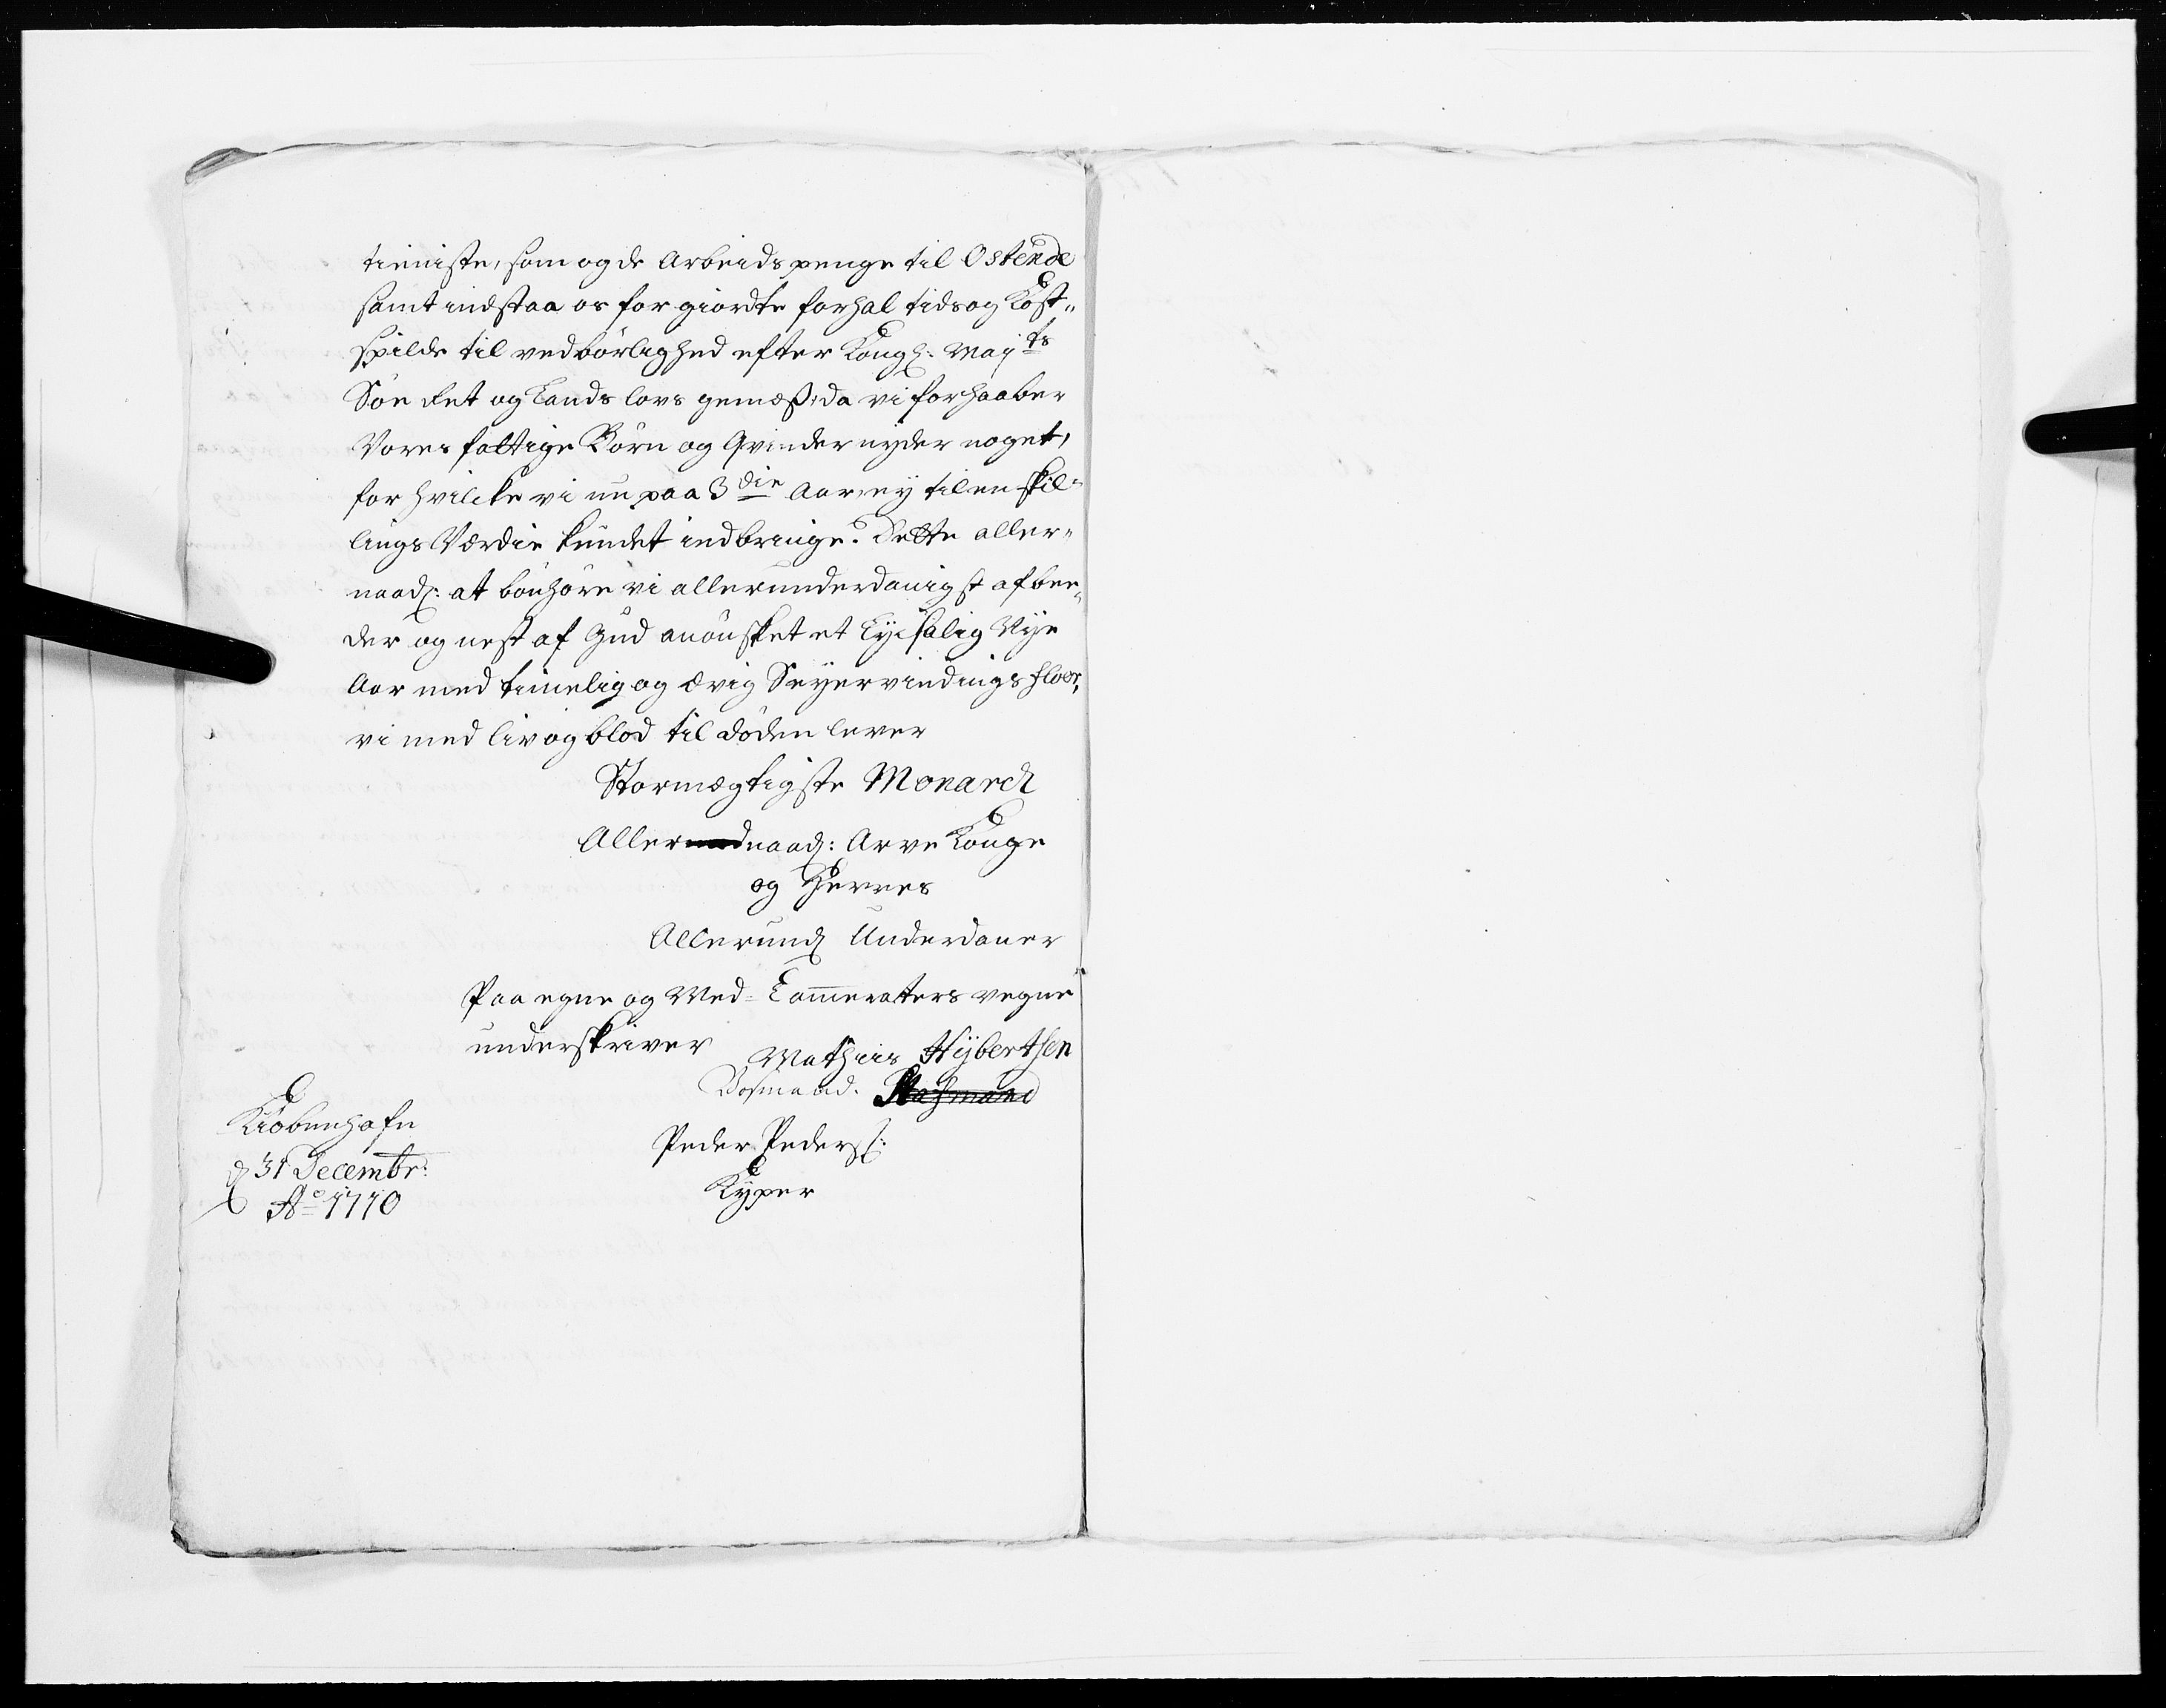 tieniste, som og de Arbeids penge til Ostende
samt indstaa os for giordte forhal tids og Kost-
spilde til vedbörlighed efter Kongl: Maj ts
Söe Ret og Lands lovs gemæs, da vi forhaaber
Vores fattige Börn og Qvinder nyder noget,
for hvilcke vi nu paa 3 die Aar, ey til en skil-
lings Værdie kundet indbringe. Dette aller-
naad: at bönhöre vi allerunderdanigst afbee-
der og nest af Gud anönsket et Lyksalig Nye
Aar med timelig og ævig Seyervindings floer,
vi med liv og blod til döden lever
Stormægtigste Monarch
Allernaad: Arve Konge
og Herres
Allerund Underdaner
Paa egne og Med-Cammeraters vegne
underskriver Mathiis Hÿbertsen
Bosmand.
Peder Peders:
Kyper
Kiöbenhafn
d 31 Decembr:
Ao 1710